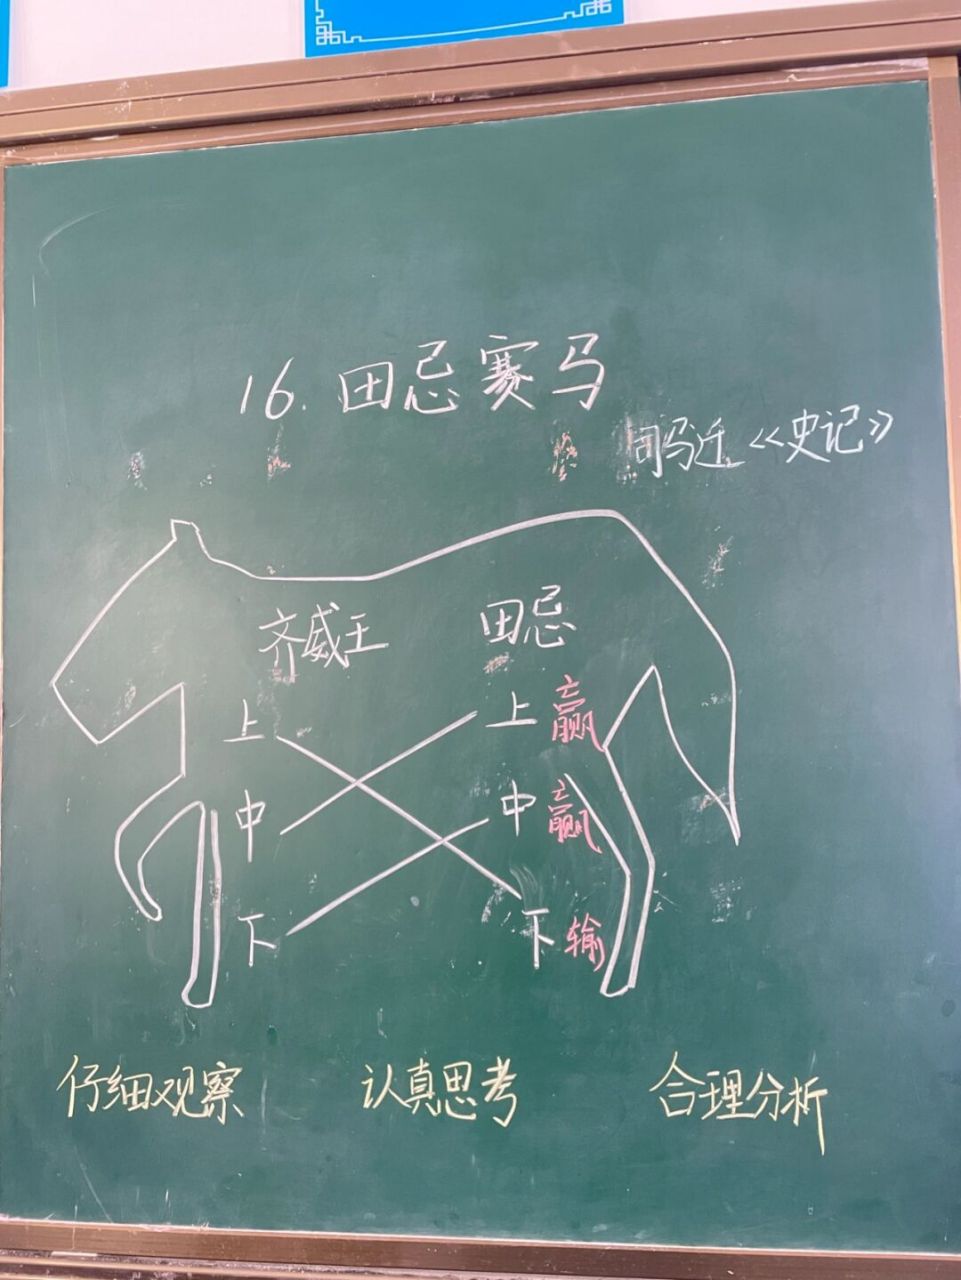 16.田忌赛马
司马迁《史记》
齐威王 田忌
上 上 赢
中 中 赢
下 下 输
仔细观察 认真思考 合理分析